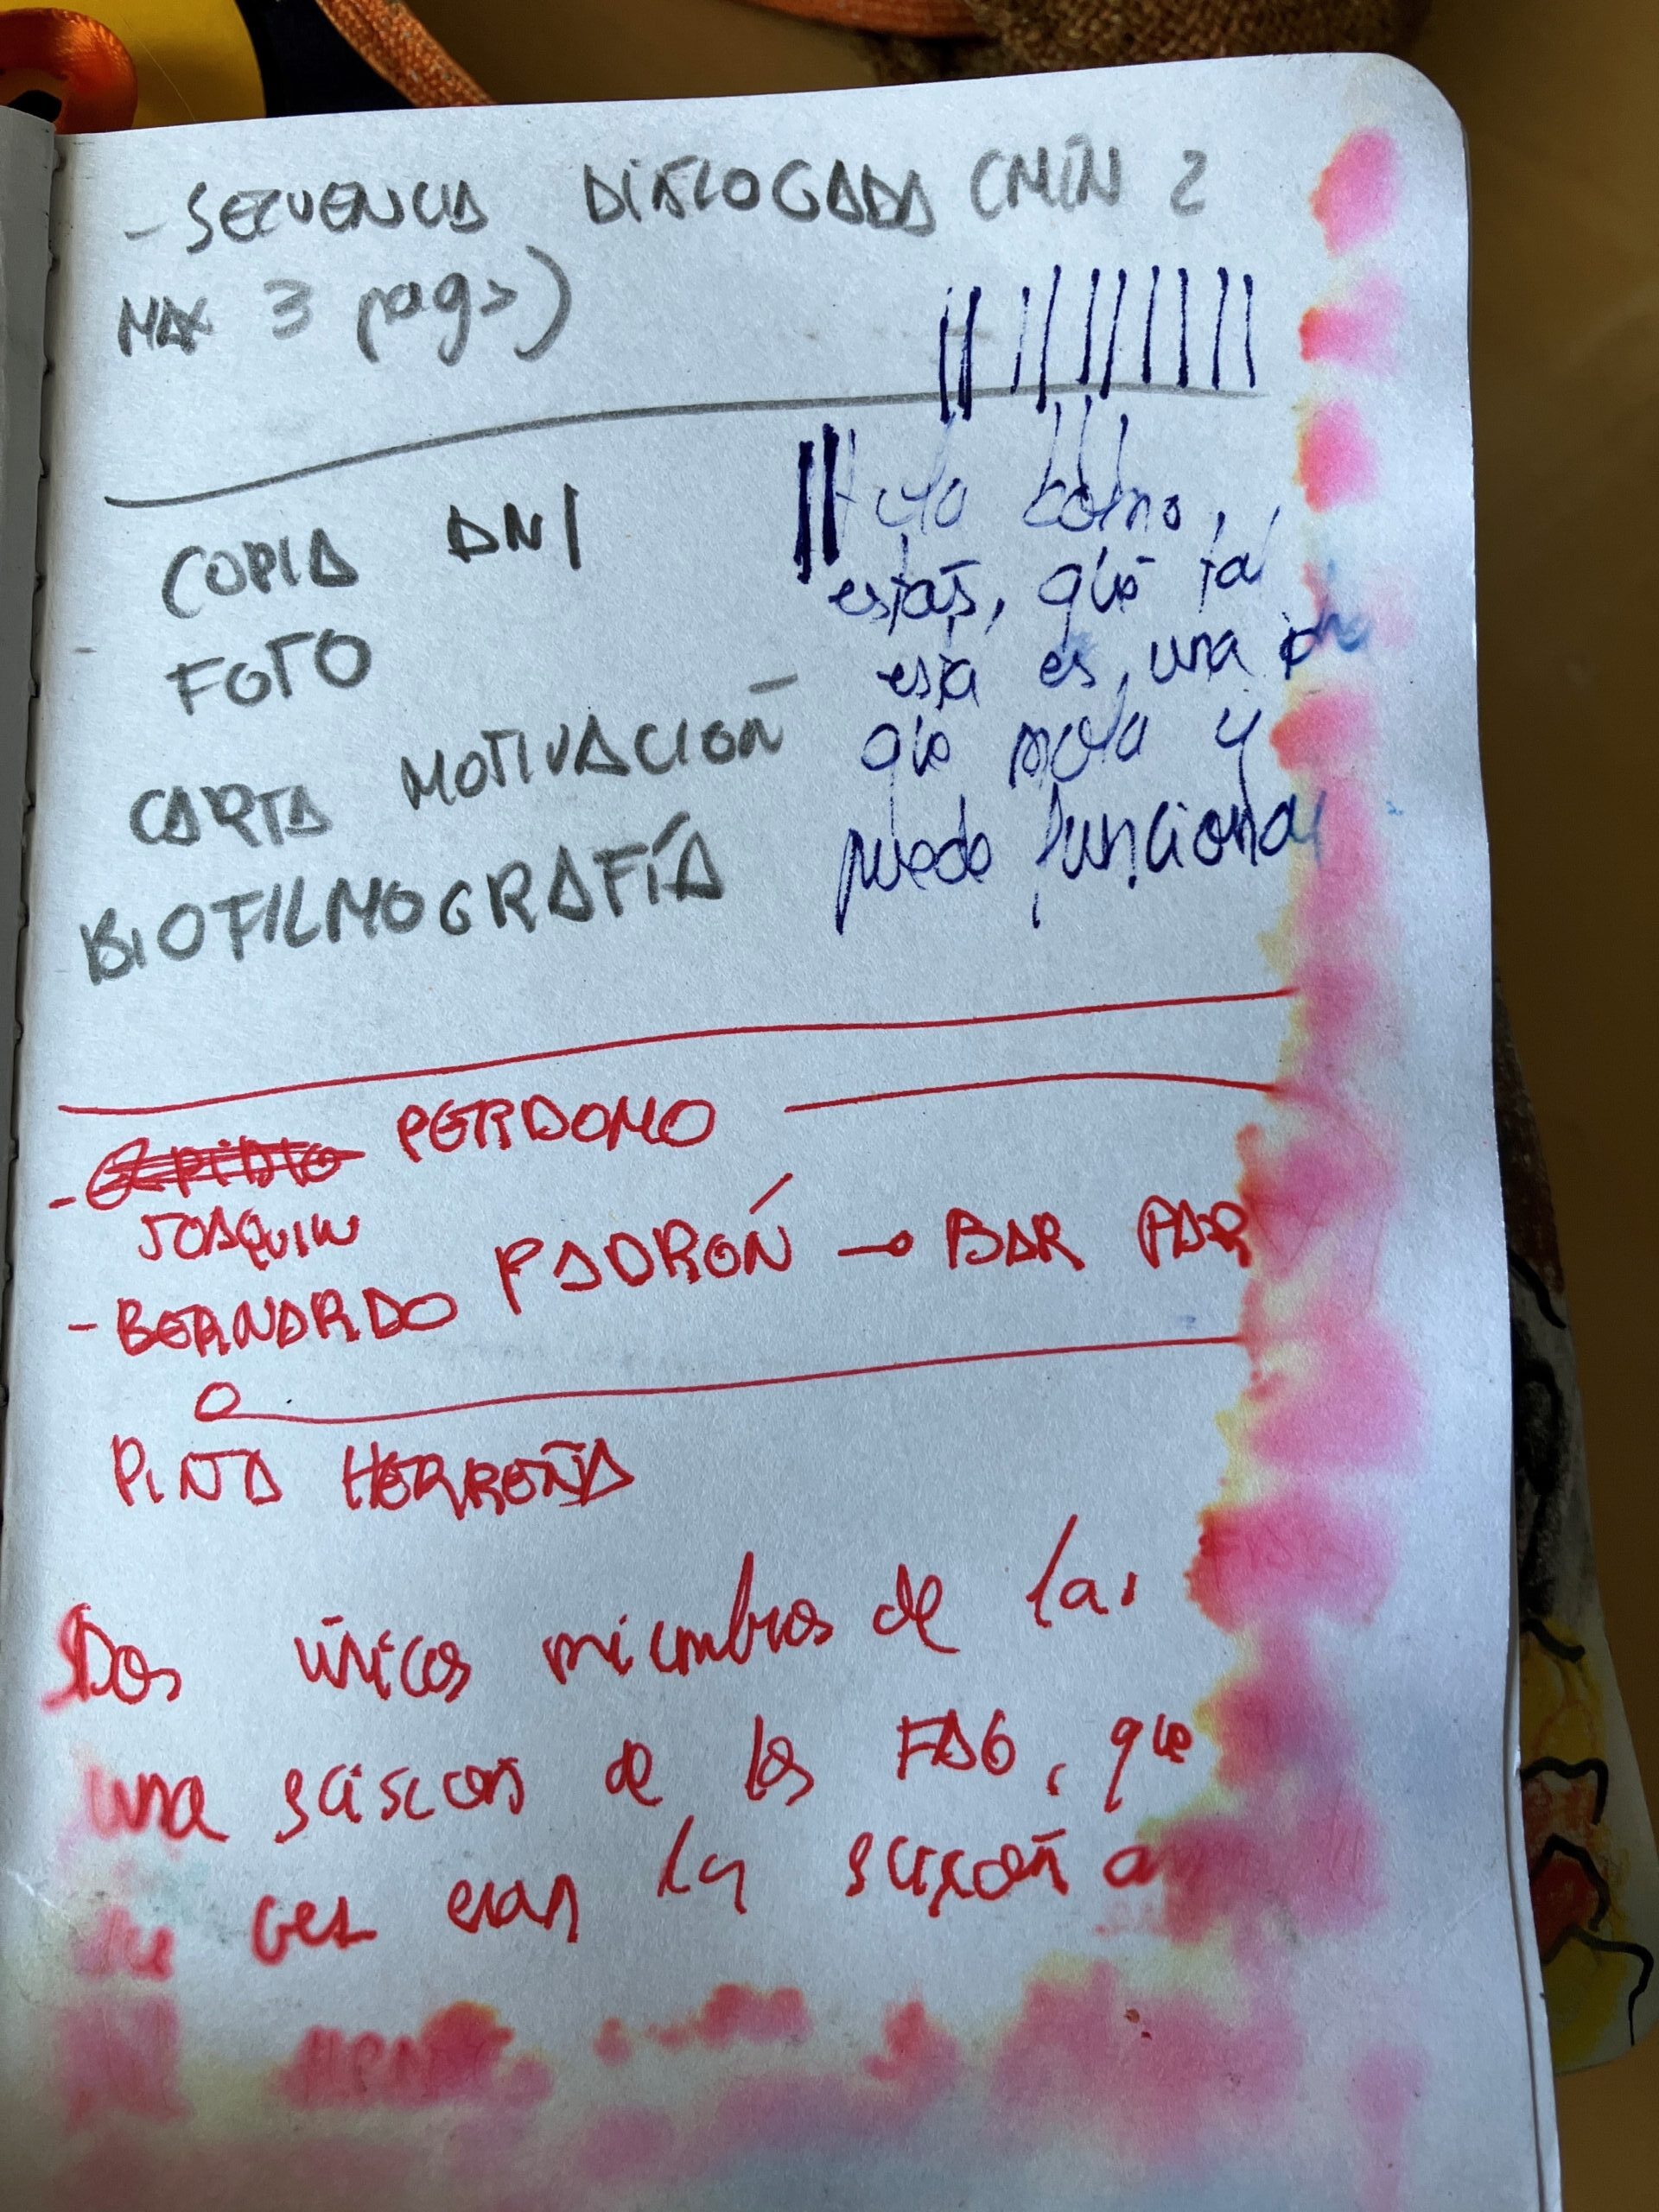 - SECUENCIA DIALOGADA (MÍN 2
MAX 3 pags)
COPIA DNI
FOTO
CARTA MOTIVACIÓN
BIOFILMOGRAFÍA
Hola como,
estás, qué tal
esta es, una
que mola y
puede funcionar
- PERDOMO
JOAQUIN
- BERNARDO PADRÓN → BAR
PINTA HERREÑA
Dos únicos miembros de las
una de los FAG, que
vez eran la